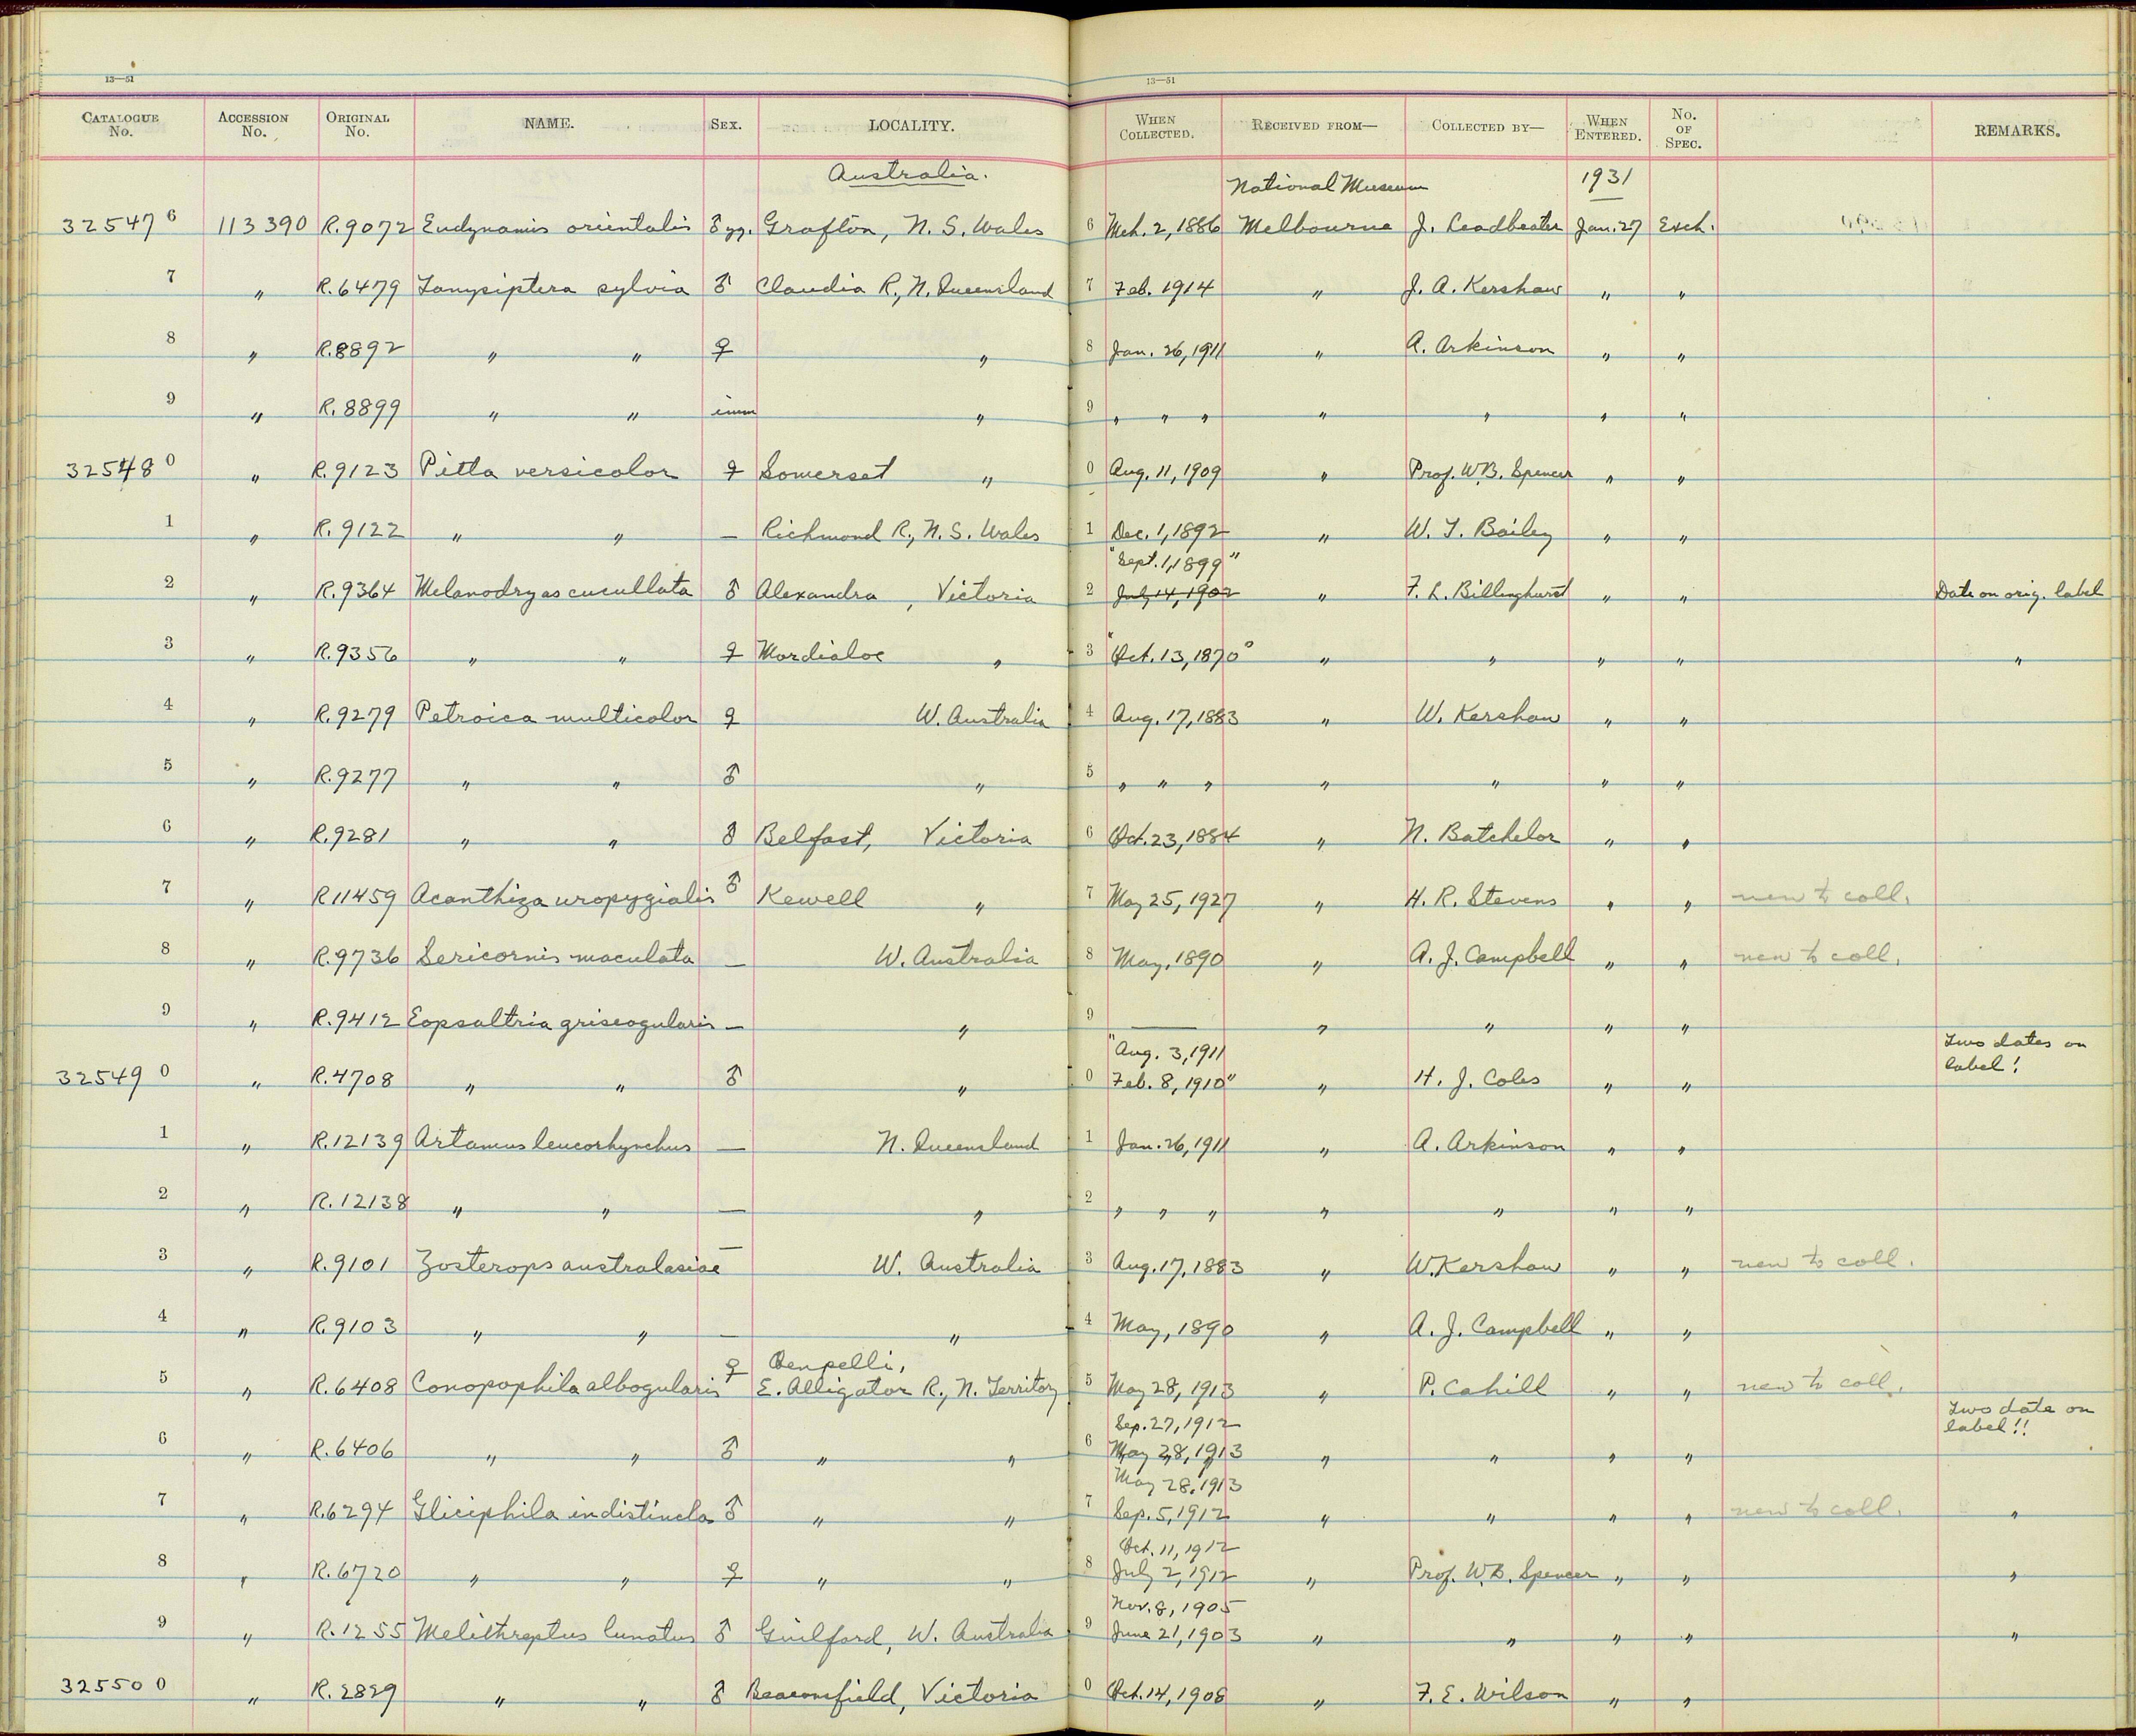 13—51 13—51
CATALOGUE No. ACCESSION No. ORIGINAL No. NAME. SEX. LOCALITY. WHEN COLLECTED. RECEIVED FROM— COLLECTED BY— WHEN ENTERED. No. OF SPEC. REMARKS.
Australia. National Museum 1931
32547 6 113390 R.9072 Eudynamis orientalis ♂ yg. Grafton, N. S. Wales 6 Mch. 2, 1886 Melbourne J. Leadbeater Jan. 27 Exch.
7 " R.6479 Tanysiptera sylvia ♂ Claudia R., N. Queensland 7 Feb. 1914 " J. A. Kershaw " "
8 " R.8892 " " ♀ " 8 Jan. 26, 1911 " A. Arkinson " "
9 " R.8899 " " imm " 9 " " " " " " "
32548 0 " R.9123 Pitta versicolor ♀ Somerset " 0 Aug. 11, 1909 " Prof. W.B. Spencer " "
1 " R.9122 " " — Richmond R., N. S. Wales 1 Dec. 1, 1892 " W. T. Bailey " "
"Sept. 1, 1899"
2 " R.9364 Melanodryas cucullata ♂ Alexandra, Victoria 2 July 14, 1902 " F. L. Billinghurst " " Date on orig. label
3 " R.9356 " " ♀ Mordialoc " 3 "Oct. 13, 1870" " " " " "
4 " R.9279 Petroica multicolor ♀ W. Australia 4 Aug. 17, 1883 " W. Kershaw " "
5 " R.9277 " " ♂ " 5 " " " " " " "
6 " R.9281 " " ♂ Belfast, Victoria 6 Oct. 23, 1884 " N. Batchelor " "
7 " R11459 Acanthiza uropygialis ♂ Kewell " 7 May 25, 1927 " H. R. Stevens " " new to coll.
8 " R.9736 Sericornis maculata — W. Australia 8 May, 1890 " A. J. Campbell " " new to coll.
9 " R.9412 Eopsaltria griseogularis — " 9 — " " " "
"Aug. 3, 1911 Two dates on
32549 0 " R.4708 " " ♂ " 0 Feb. 8, 1910" " H. J. Coles " " label!
1 " R.12139 Artamus leucorhynchus — N. Queensland 1 Jan. 26, 1911 " A. Arkinson " "
2 " R.12138 " " — " 2 " " " " " " "
3 " R.9101 Zosterops australasiae — W. Australia 3 Aug. 17, 1883 " W. Kershaw " " new to coll.
4 " R.9103 " " — " 4 May, 1890 " A. J. Campbell " "
Oenpelli,
5 " R.6408 Conopophila albogularis ♀ E. Alligator R., N. Territory 5 May 28, 1913 " P. Cahill " " new to coll.
Sep. 27, 1912 Two date on
6 " R.6406 " " ♂ " " 6 May 28, 1913 " " " " label!!
May 28, 1913
7 " R.6294 Gliciphila indistincta ♂ " " 7 Sep. 5, 1912 " " " " new to coll. "
Oct. 11, 1912
8 " R.6720 " " ♀ " " 8 July 2, 1912 " Prof. W.B. Spencer " " "
Nov. 8, 1905
9 " R.1255 Melithreptus lunatus ♂ Guilford, W. Australia 9 June 21, 1903 " " " " "
32550 0 " R.2829 " " ♂ Beaconsfield, Victoria 0 Oct. 14, 1908 " F. E. Wilson " "